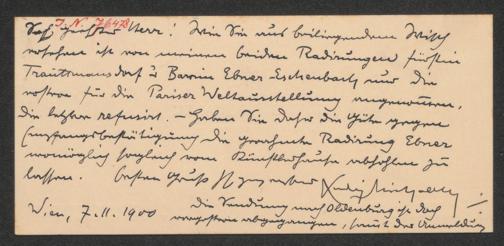 I. N. 76478
Sehr geehrter Herr! Wie Sie aus beiliegendem Wisch
ersehen ist von meinen beiden Radirungen Fürstin
Trauttmansdorf u Baronin Ebner-Eschenbach nur die
erstere für die Pariser Weltausstellung angenommen,
die letztere refusirt. – Haben Sie daher die Güte gegen
Empfangsbestätigung die gerahmte Radirung Ebner
womöglich sogleich vom Künstlerhause abholen zu
lassen. Besten Gruß Ihr ergebener
Wien, 7. II. 1900 Die Sendung nach Oldenburg ist doch
abgegangen, sammt der Anmeldung